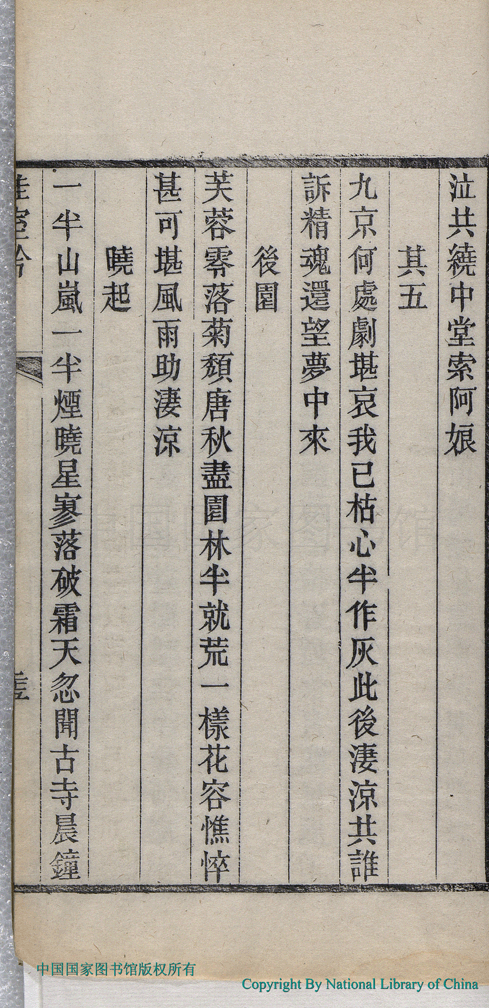 泣共繞中堂索阿娘
其五
九京何處劇堪哀我已枯心半作灰此後淒涼共誰
訴精魂還望夢中來
後園
芙蓉零落菊頹唐秋盡園林半就荒一樣花容憔悴
甚可堪風雨助淒涼
曉起
一半山嵐一半煙曉星寥落破霜天忽聞古寺晨鐘
中国国家图书馆版权所有
Copyright By National Library of China